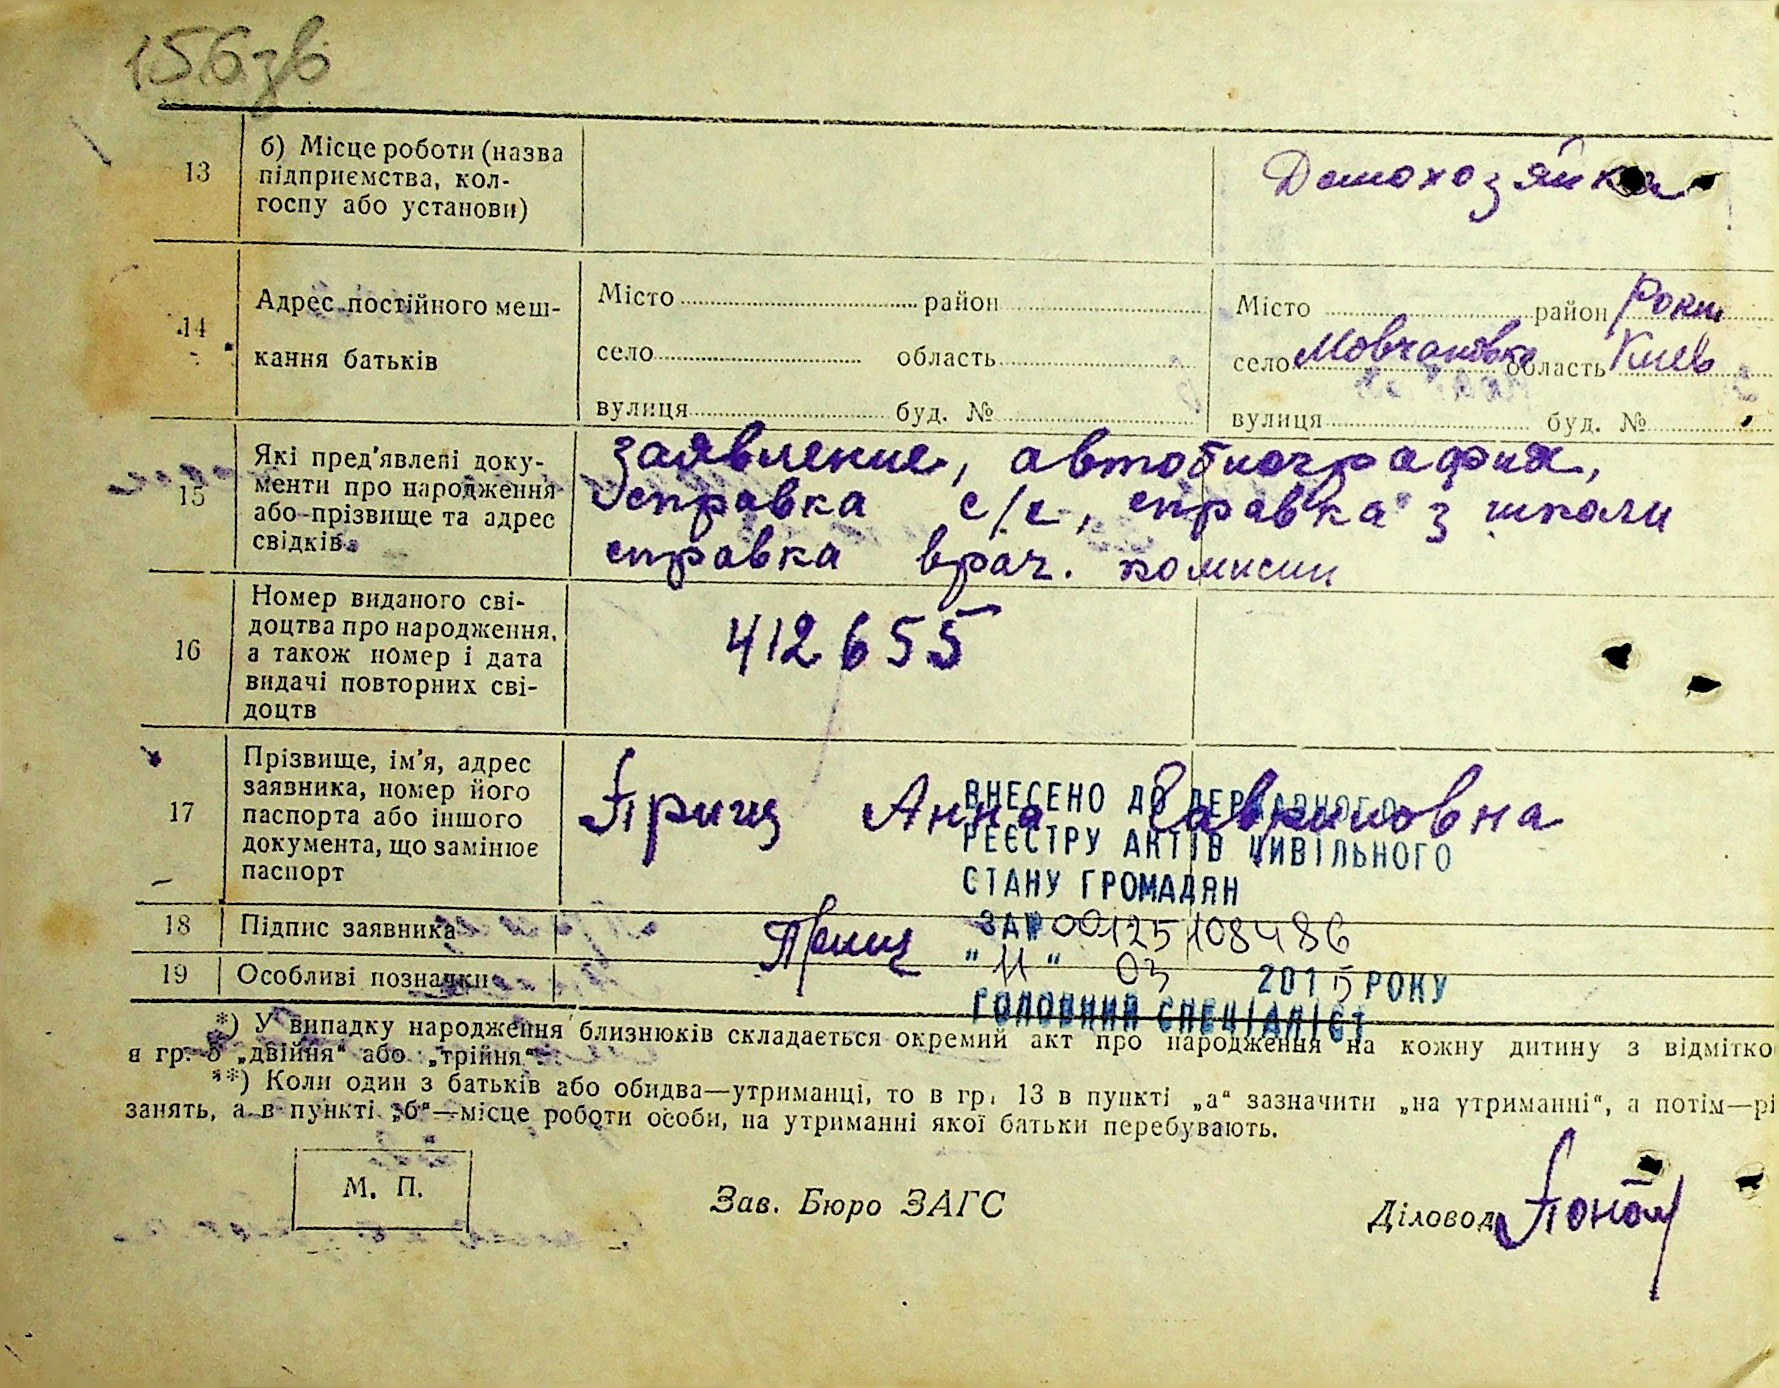 156зв
13
б) Місце роботи (назва
підприємства, кол-
госпу або установи)
Домохозяйка
14
Адрес постійного меш-
кання батьків
Місто район
село область
вулиця буд. №
Місто район Роки
село Мовчановка область Киев
вулиця буд. №
15
Які пред'явлені доку-
менти про народження
або прізвище та адрес
свідків
заявление, автобиография,
справка с/с, справка з школи
справка врач. комисии
16
Номер виданого сві-
доцтва про народження,
а також номер і дата
видачі повторних сві-
доцтв
412655
17
Прізвище, ім'я, адрес
заявника, номер його
паспорта або іншого
документа, що замінює
паспорт
Прищ Анна Гавриловна
ВНЕСЕНО ДО ДЕРЖАВНОГО
РЕЄСТРУ АКТІВ ЦИВІЛЬНОГО
СТАНУ ГРОМАДЯН
ЗА № 00125108486
" 11 " 03 2015 РОКУ
ГОЛОВНИЙ СПЕЦІАЛІСТ
18
Підпис заявника
Прищ
19
Особливі позначки
*) У випадку народження близнюків складається окремий акт про народження на кожну дитину з відмітко
в гр. 8 „двійня“ або „трійня“
**) Коли один з батьків або обидва—утриманці, то в гр. 13 в пункті „а“ зазначити „на утриманні“, а потім—рі
занять, а в пункті „б“—місце роботи особи, на утриманні якої батьки перебувають.
М. П.
Зав. Бюро ЗАГС
Діловод